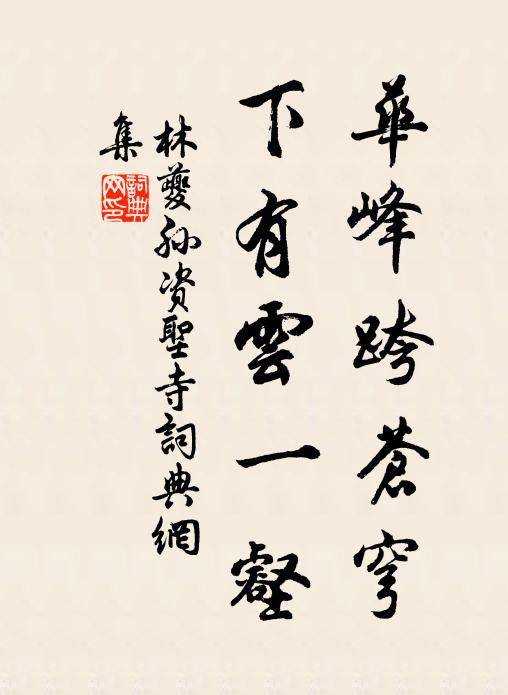 華峰跨蒼穹
下有雲一壑
林夔孙资聖寺詞典網
集
詞典网印